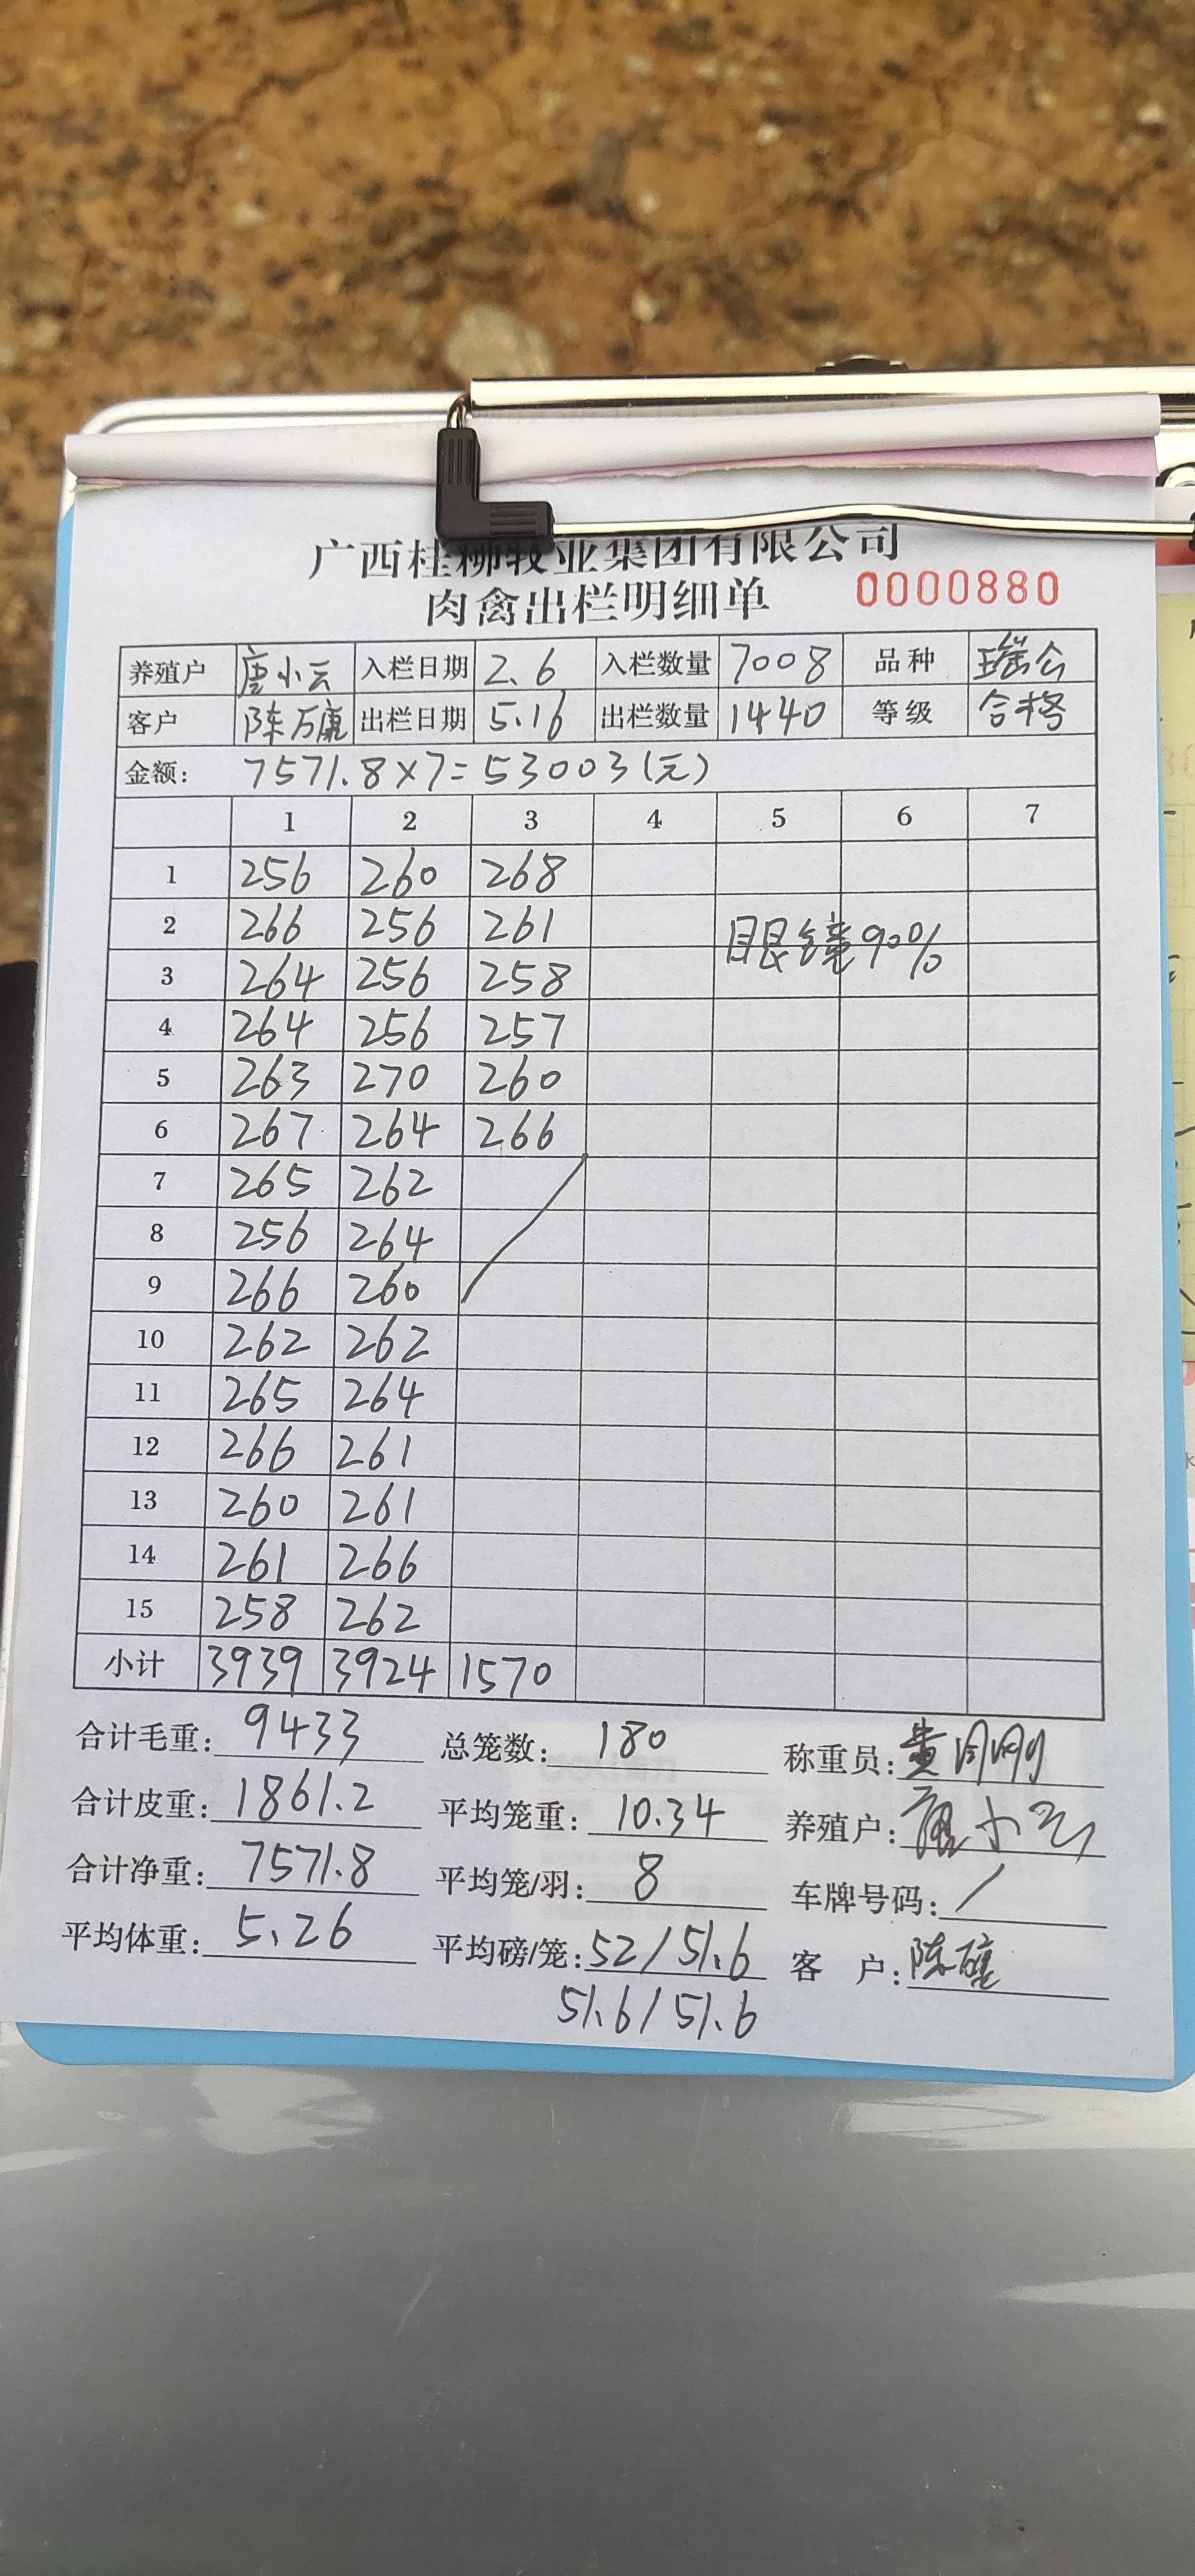 广西桂柳牧业集团有限公司
肉禽出栏明细单 0000880
养殖户 唐小云 入栏日期 2.6 入栏数量 7008 品种 瑶公
客户 陈万康 出栏日期 5.16 出栏数量 1440 等级 合格
金额: 7571.8×7=53003(元)
1 2 3 4 5 6 7
1 256 260 268
2 266 256 261
眼镜90%
3 264 256 258
4 264 256 257
5 263 270 260
6 267 264 266
7 265 262
8 256 264
9 266 260
10 262 262
11 265 264
12 266 261
13 260 261
14 261 266
15 258 262
小计 3939 3924 1570
合计毛重: 9433 总笼数: 180 称重员: 黄刚刚
合计皮重: 1861.2 平均笼重: 10.34 养殖户: 唐小云
合计净重: 7571.8 平均笼/羽: 8 车牌号码: /
平均体重: 5.26 平均磅/笼: 52/51.6 客 户: 陈
51.6/51.6